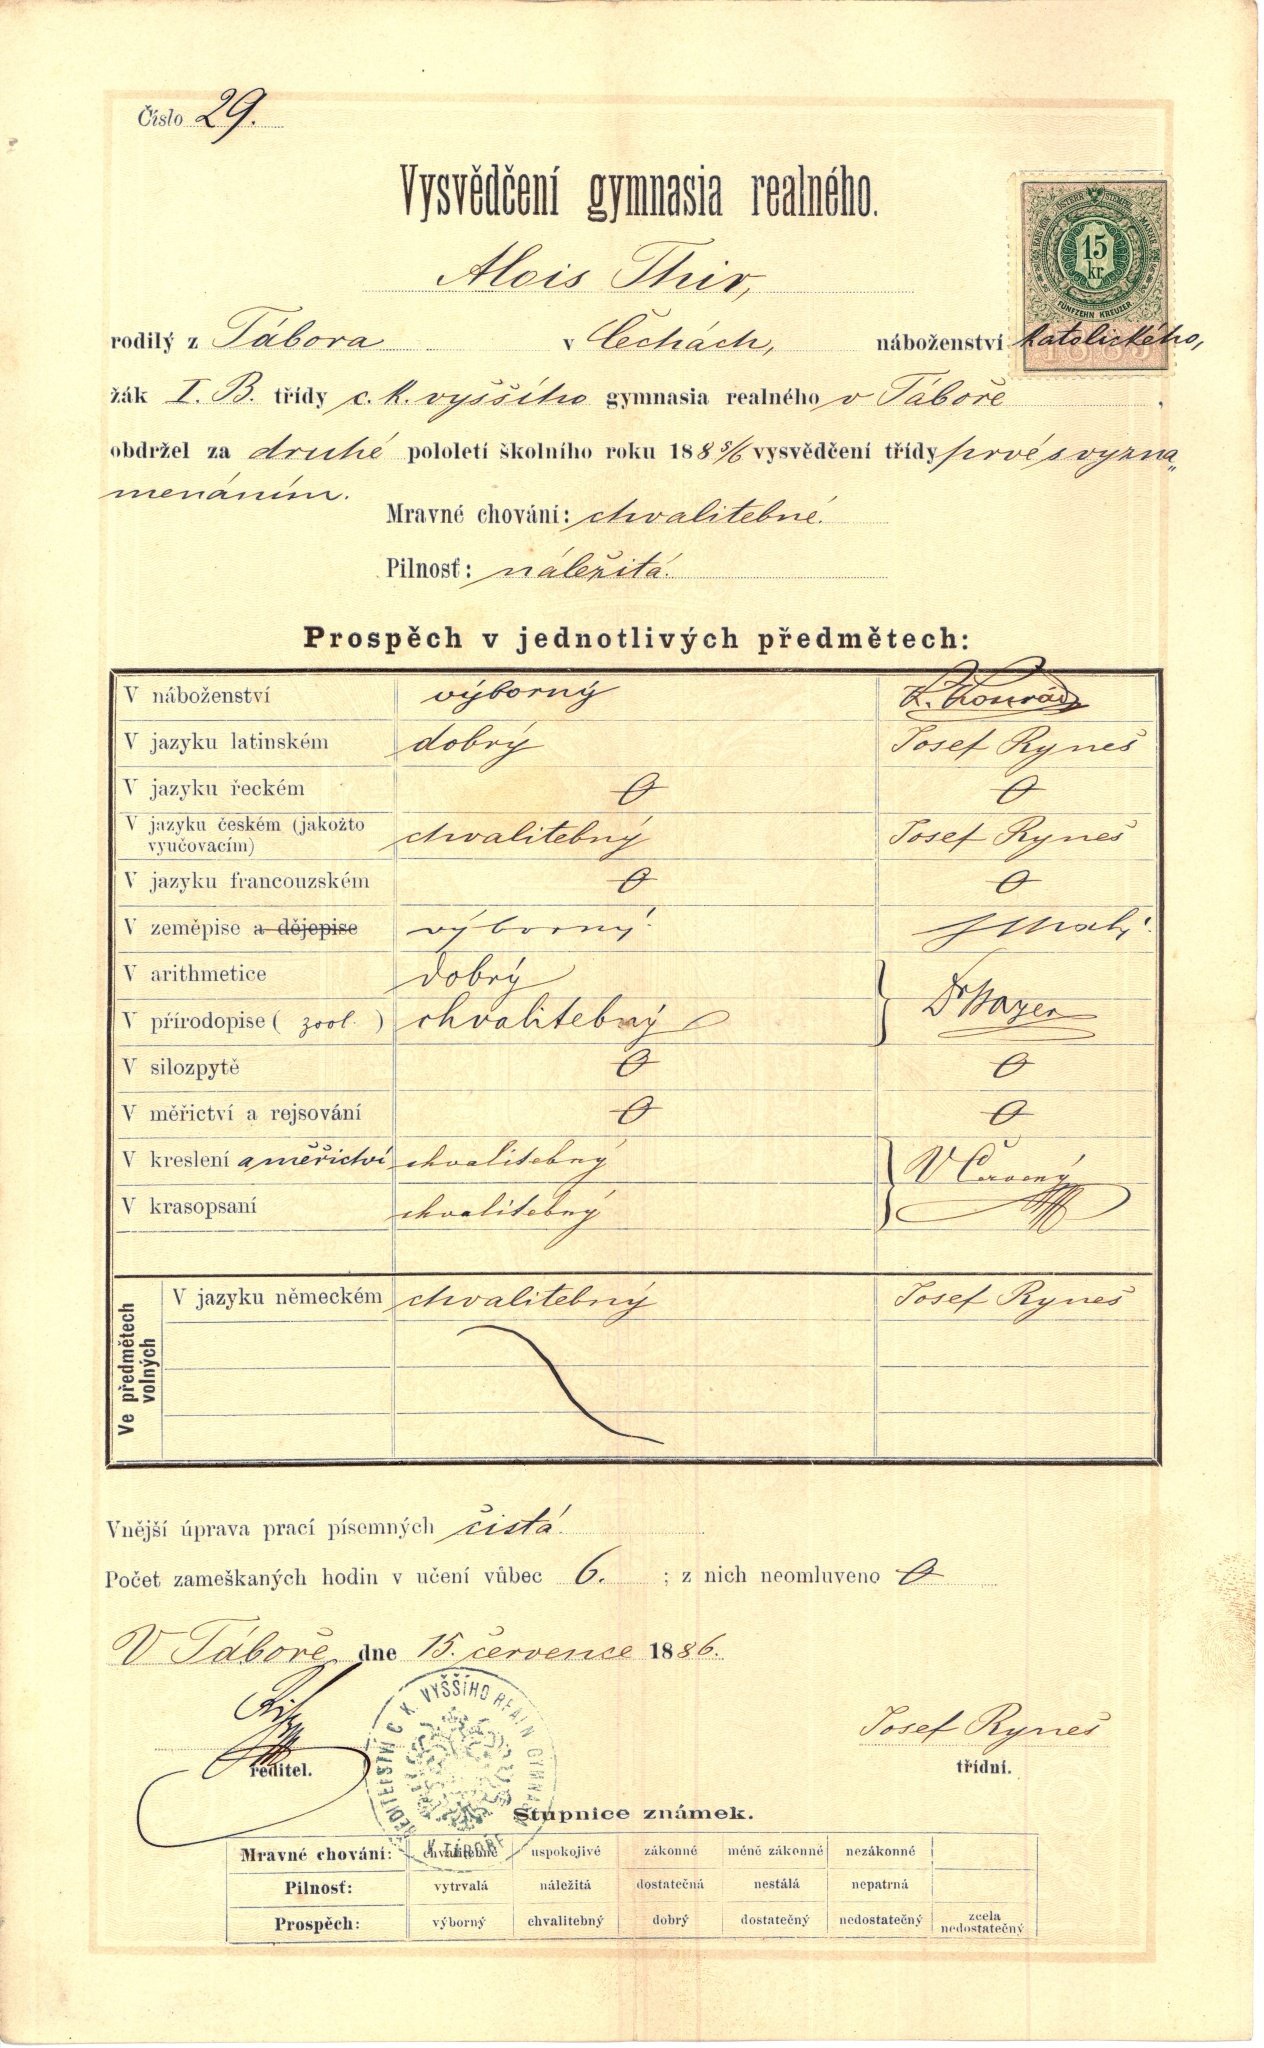 Číslo 29.
Vysvědčení gymnasia realného.
KAIS. KÖN. ÖSTERR. STEMPEL MARKE
15
kr.
FÜNFZEHN KREUZER
1885
Alois Thir,
rodilý z Tábora v Čechách, náboženství katolického,
žák I. B. třídy c. k. vyššího gymnasia realného v Táboře,
obdržel za druhé pololetí školního roku 1885/6 vysvědčení třídy prvé s vyzna„
menáním.
Mravné chování: chvalitebné.
Pilnosť: náležitá.
Prospěch v jednotlivých předmětech:
V náboženství výborný K. Konrád
V jazyku latinském dobrý Josef Ryneš
V jazyku řeckém 0 0
V jazyku českém (jakožto
vyučovacím) chvalitebný Josef Ryneš
V jazyku francouzském 0 0
V zeměpise a dějepise výborný. J Malý.
V arithmetice dobrý
V přírodopise ( zool. ) chvalitebný Dr
V silozpytě 0 0
V měřictví a rejsování 0 0
V kreslení a měřictví chvalitebný V Červený
V krasopsaní chvalitebný
Ve předmětech
volných
V jazyku německém chvalitebný Josef Ryneš
Vnější úprava prací písemných čistá
Počet zameškaných hodin v učení vůbec 6. ; z nich neomluveno 0
V Táboře dne 15. července 1886.
ŘEDITELSTVÍ C. K. VYŠŠÍHO REALN. GYMNASIA
V TÁBOŘE
Josef Ryneš
ředitel. třídní.
Stupnice známek.
Mravné chování: chvalitebné uspokojivé zákonné méně zákonné nezákonné
Pilnosť: vytrvalá náležitá dostatečná nestálá nepatrná
Prospěch: výborný chvalitebný dobrý dostatečný nedostatečný zcela
nedostatečný